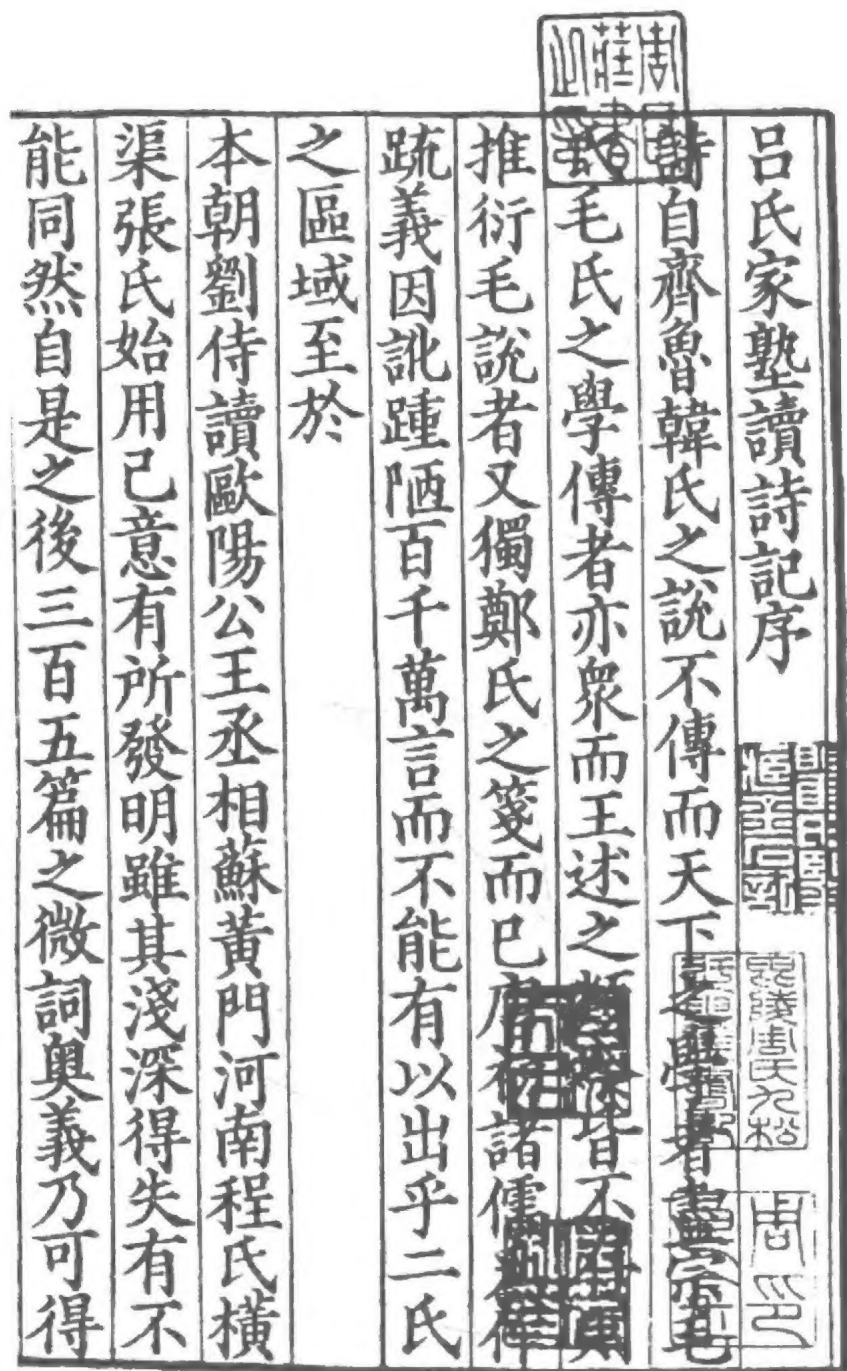 呂氏家塾讀詩記序
詩自齊魯韓氏之說不傳而天下之學者盡宗毛
氏毛氏之學傳者亦衆而王述之類皆不
推衍毛說者又獨鄭氏之箋而已唐初諸儒作
䟽義因訛踵陋百千萬言而不能有以出乎二氏
之區域至於
本朝劉侍讀歐陽公王丞相蘇黃門河南程氏橫
渠張氏始用己意有所發明雖其淺深得失有不
能同然自是之後三百五篇之微詞奧義乃可得